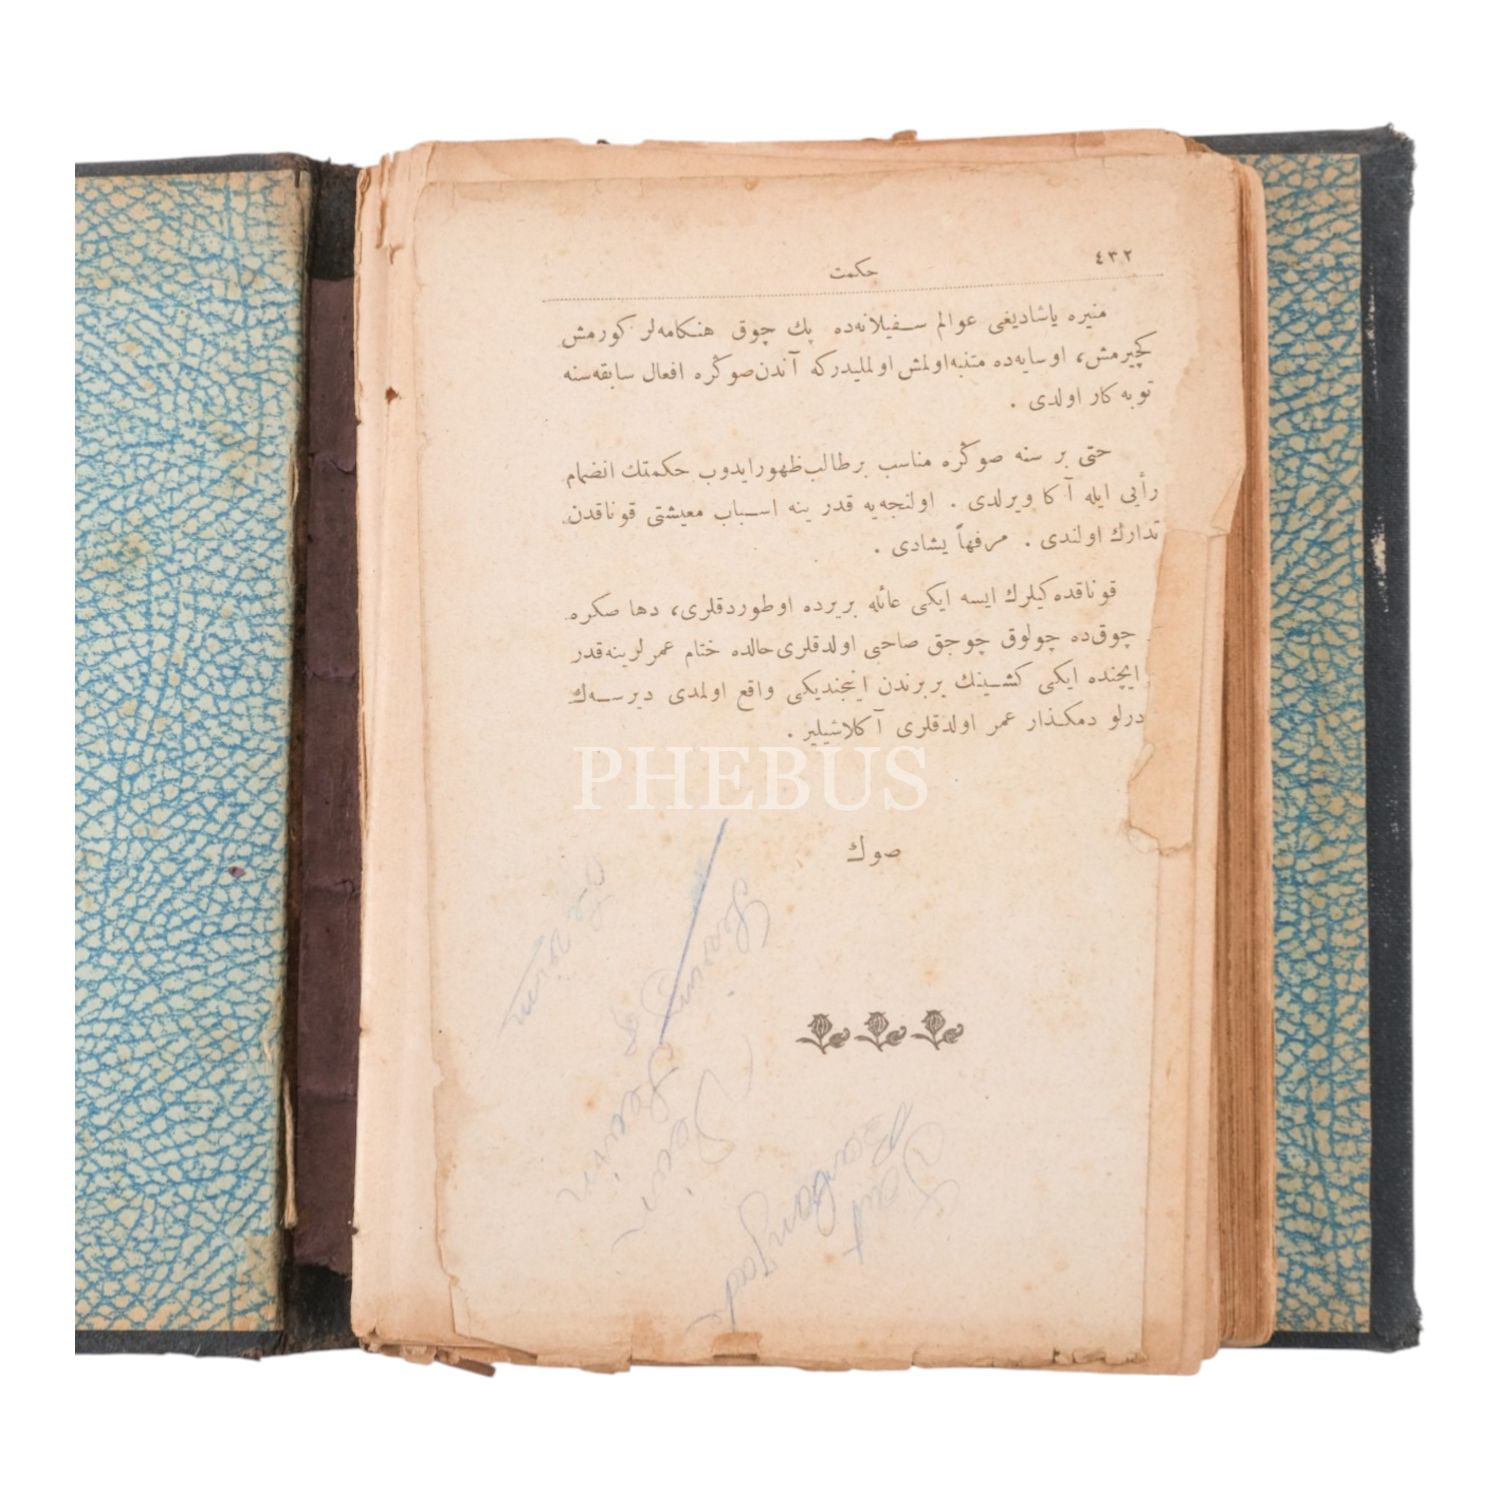 ٤٣٢
حكمت
منيره ياشاديغى عوالم سفيلانه‌ده پك چوق هنكامه‌لر كورمش
كچيرمش، اوسايه‌ده متنبه اولمش اولمليدركه آندن صوڭره افعال سابقه‌سنه
توبه كار اولدى .
حتى بر سنه صوڭره مناسب بر طالب ظهور ايدوب حكمتك انضمام
رأيى ايله آكا ويرلدى . اولنجه‌يه قدر ينه اسباب معيشتى قوناقدن
تدارك اولندى . مرفهاً يشادى .
قوناقده كيلرك ايسه ايكى عائله بر يرده اوطوردقلرى، دها صكره
چوق‌ده چولوق چوجق صاحبى اولدقلرى حالده ختام عمرلرينه قدر
ايچنده ايكى كشينك بربرندن اينجنديكى واقع اولمدى ديرسه‌ك
درلو دمكذار عمر اولدقلرى آكلاشيلير .
PHEBUS
صوك
Sevim
Sevim
Sait